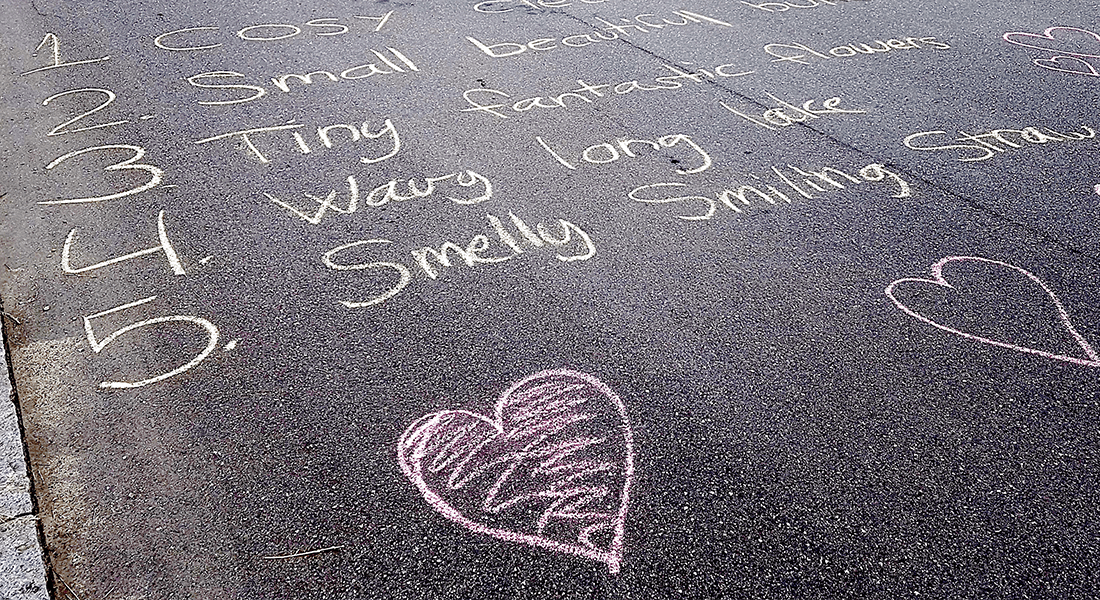 1. COSY
2. Small beautiful
3. Tiny fantastic flowers
4. Wavy long lake
5. Smelly Smiling Straw